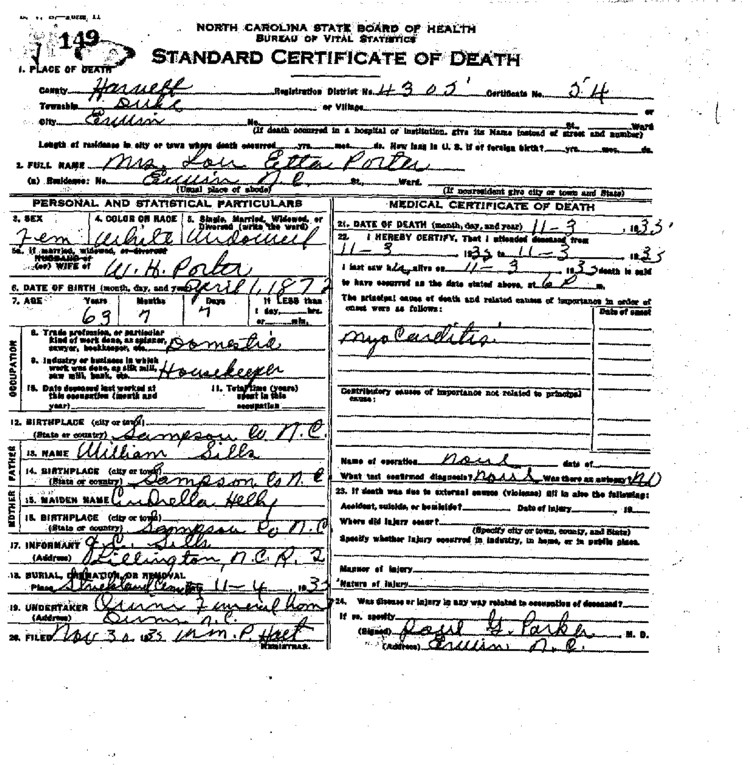 149
NORTH CAROLINA STATE BOARD OF HEALTH
BUREAU OF VITAL STATISTICS
STANDARD CERTIFICATE OF DEATH
1. PLACE OF DEATH
County Harnett Registration District No. 4305 Certificate No. 54
Township Duke or Village or
City Erwin No. St. Ward
(If death occurred in a hospital or institution, give its Name instead of street and number)
Length of residence in city or town where death occurred yrs. mos. ds. How long in U. S. if of foreign birth? yrs. mos. ds.
2. FULL NAME Mrs. Lou Etta Porter
(a) Residence: No. Erwin N.C. St., Ward.
(Usual place of abode) (If nonresident give city or town and State)
PERSONAL AND STATISTICAL PARTICULARS
3. SEX 4. COLOR OR RACE 5. Single, Married, Widowed, or Divorced (write the word)
Fem White Widowed
5a. If married, widowed, or divorced
HUSBAND of
(or) WIFE of W. H. Porter
6. DATE OF BIRTH (month, day, and year) April 1, 1872
7. AGE Years Months Days If LESS than
1 day, hrs.
or min.
63 7
OCCUPATION
8. Trade profession, or particular
kind of work done, as spinner,
sawyer, bookkeeper, etc. Domestic
9. Industry or business in which
work was done, as silk mill,
saw mill, bank, etc. Housekeeper
10. Date deceased last worked at
this occupation (month and
year)
11. Total time (years)
spent in this
occupation
12. BIRTHPLACE (city or town)
(State or country) Sampson Co N.C.
FATHER
13. NAME William Sills
14. BIRTHPLACE (city or town)
(State or country) Sampson Co N.C
MOTHER
15. MAIDEN NAME
16. BIRTHPLACE (city or town)
(State or country) Sampson Co N.C
17. INFORMANT Sills
(Address) Lillington, N.C. R. 2
18. BURIAL, CREMATION, OR REMOVAL
Place Strickland 11-4 1935
19. UNDERTAKER Funeral Home
(Address) Dunn N.C.
20. FILED Nov 30 1935 Wm. P. Holt
REGISTRAR.
MEDICAL CERTIFICATE OF DEATH
21. DATE OF DEATH (month, day, and year) 11-3, 1935
22. I HEREBY CERTIFY, That I attended deceased from
11-3 1935 to 11-3 1935
I last saw alive on 11-3 1935 death is said
to have occurred on the date stated above, at 6 P m.
The principal cause of death and related causes of importance in order of
onset were as follows: Date of onset
Myocarditis
Contributory causes of importance not related to principal
cause:
Name of operation none date of
What test confirmed diagnosis? None Was there an autopsy? No
23. If death was due to external causes (violence) fill in also the following:
Accident, suicide, or homicide? Date of injury , 19
Where did injury occur?
(Specify city or town, county, and State)
Specify whether injury occurred in industry, in home, or in public place.
Manner of injury
Nature of injury
24. Was disease or injury in any way related to occupation of deceased?
If so, specify
(Signed) Paul G. Parker M. D.
(Address) Erwin N.C.